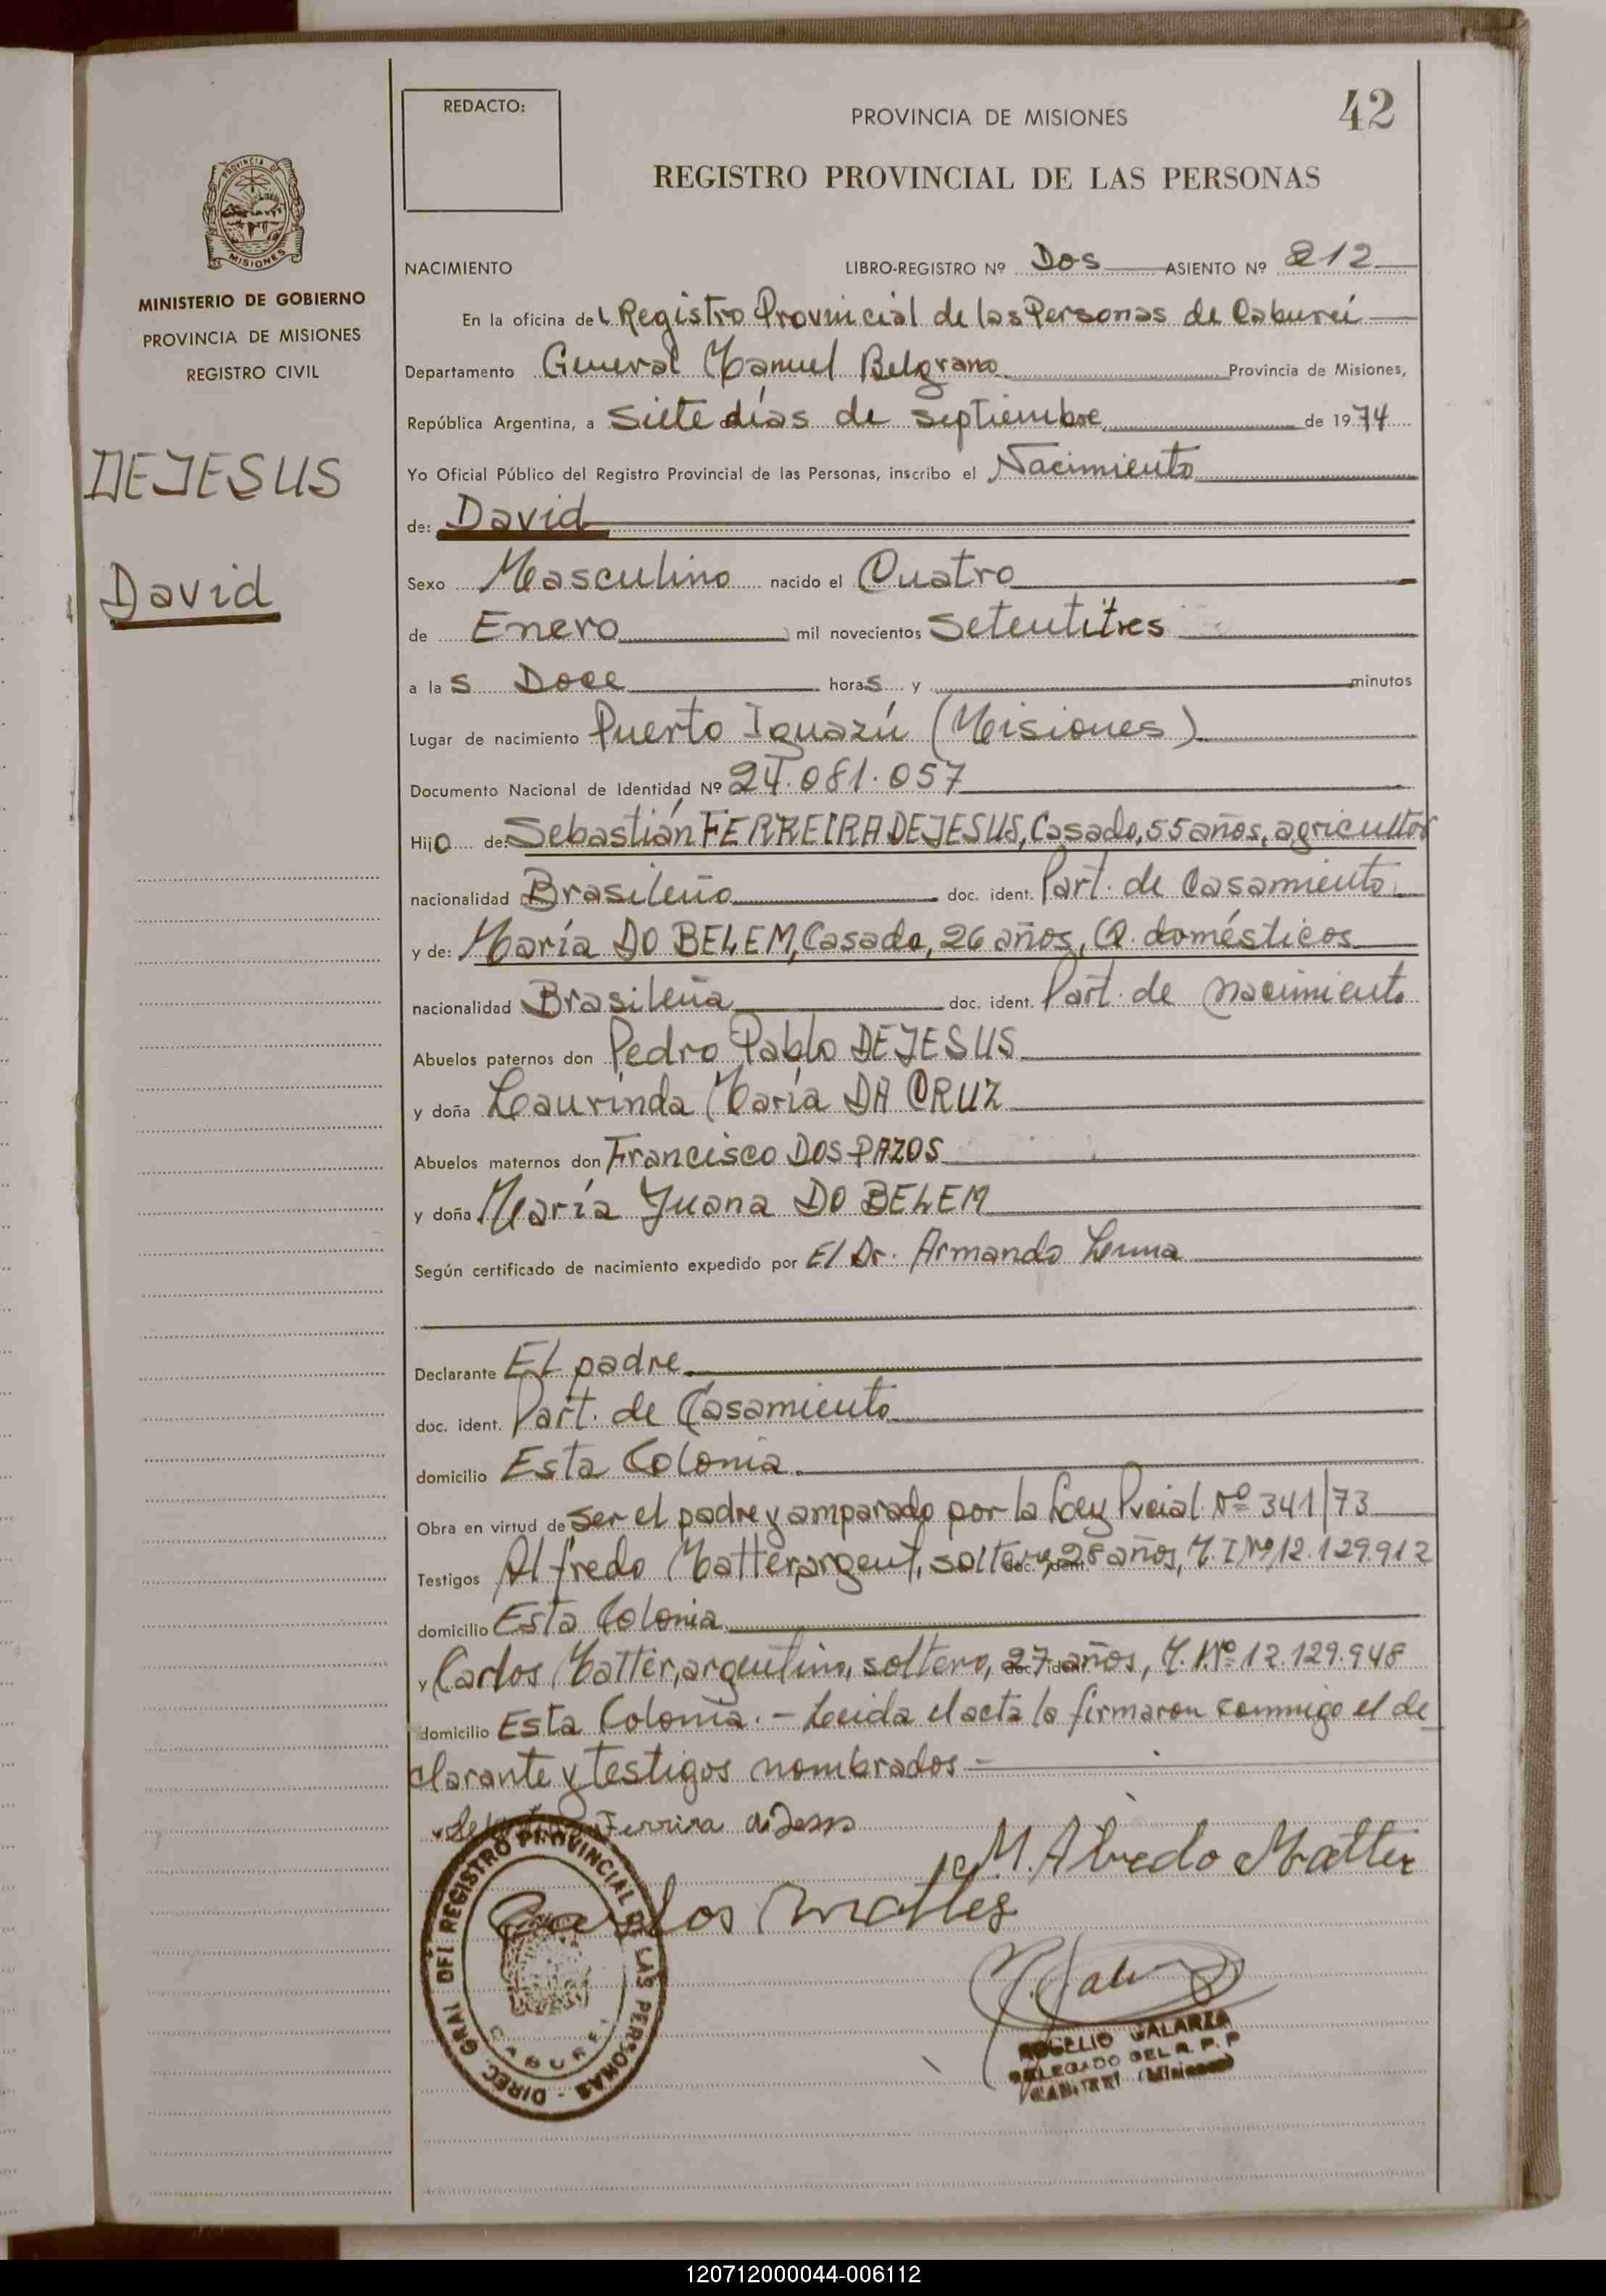 REDACTO:
PROVINCIA DE MISIONES
42
REGISTRO PROVINCIAL DE LAS PERSONAS
PROVINCIA DE
MISIONES
MINISTERIO DE GOBIERNO
PROVINCIA DE MISIONES
REGISTRO CIVIL
DEJESUS
David
NACIMIENTO LIBRO-REGISTRO Nº Dos ASIENTO Nº 212
En la oficina del Registro Provincial de las Personas de Caburei
Departamento General Manuel Belgrano Provincia de Misiones,
República Argentina, a Siete días de septiembre de 1974
Yo Oficial Público del Registro Provincial de las Personas, inscribo el Nacimiento
de: David
Sexo Masculino nacido el Cuatro
de Enero mil novecientos Setentitres
a las Doce horas y minutos
Lugar de nacimiento Puerto Iguazú (Misiones)
Documento Nacional de Identidad Nº 24.081.057
Hijo de: Sebastián FERREIRA DEJESUS, Casado, 55 años, agricultor
nacionalidad Brasileño doc. ident. Part. de Casamiento
y de: María DO BELEM, Casada, 26 años, Q. domésticos
nacionalidad Brasileña doc. ident. Part. de nacimiento
Abuelos paternos don Pedro Pablo DEJESUS
y doña Laurinda María DA CRUZ
Abuelos maternos don Francisco DOS PAZOS
y doña María Juana DO BELEM
Según certificado de nacimiento expedido por El Dr. Armando
Declarante El padre
doc. ident. Part. de Casamiento
domicilio Esta Colonia
Obra en virtud de ser el padre y amparado por la Ley Pvcial. Nº 341/73
Testigos Alfredo Matter, argent, soltero, 28 años, M.I Nº 12.129.912
domicilio Esta Colonia
y Carlos Matter, argentino, soltero, 27 años, M. Nº 12.129.948
domicilio Esta Colonia. - Leida el acta la firmaron conmigo el de
clarante y testigos nombrados -
Ferrira
M. Alvedo Matter
Carlos Matter
DIREC. GRAL DEL REGISTRO PROVINCIAL DE LAS PERSONAS
CABUREI
ROGELIO GALARZA
DELEGADO DEL R. P. P
(Misiones)
120712000044-006112